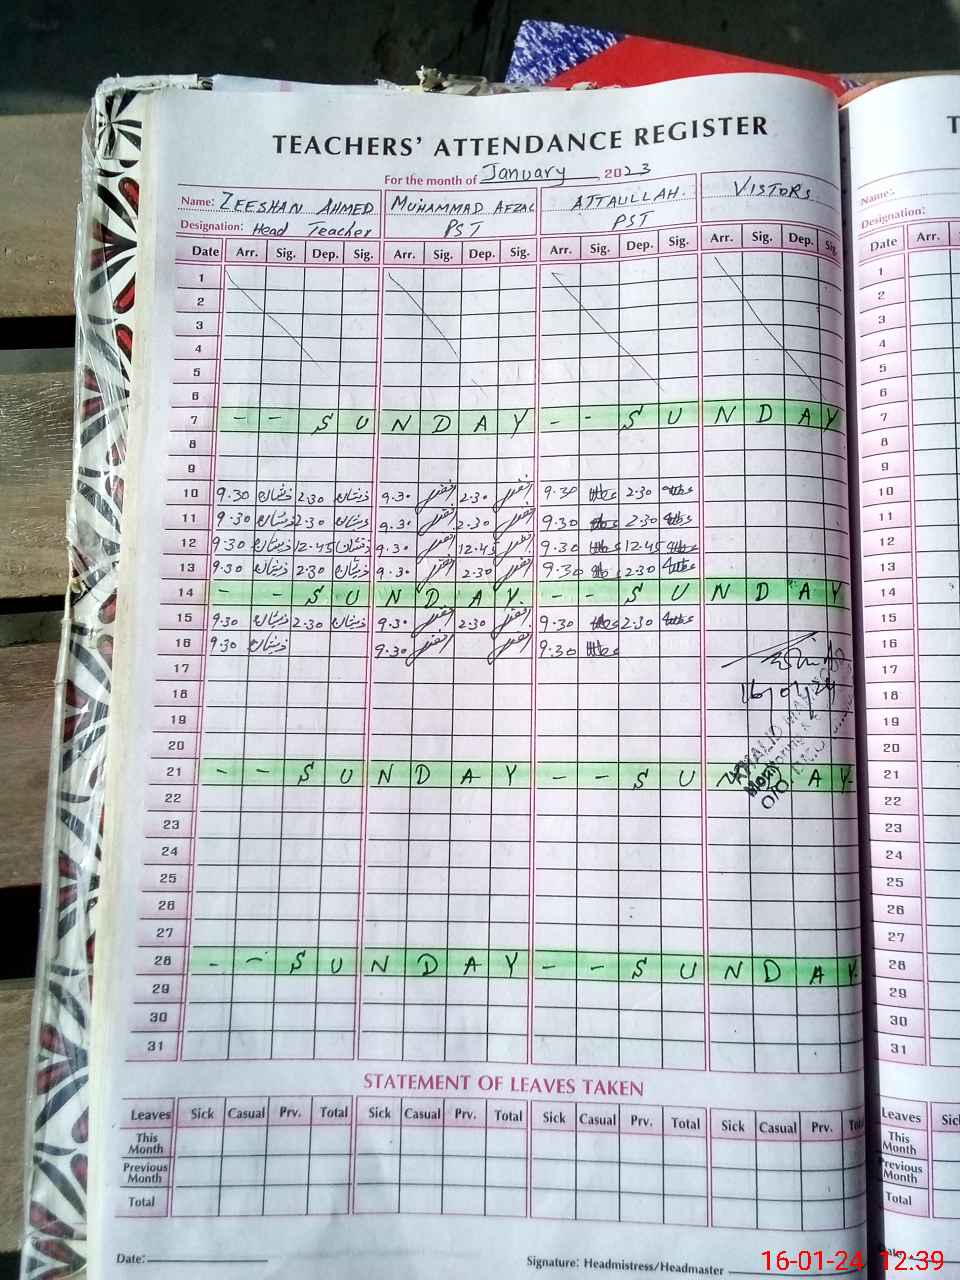 TEACHERS' ATTENDANCE REGISTER
For the month of January 2023
Name: ZEESHAN AHMED MUHAMMAD AFZAL ATTAULLAH. VISTORS
Designation: Head Teacher PST PST
Date Arr. Sig. Dep. Sig. Arr. Sig. Dep. Sig. Arr. Sig. Dep. Sig. Arr. Sig. Dep. Sig.
1
2
3
4
5
6
7 - - S U N D A Y - - S U N D A Y
8
9
10 9.30 ذیشان 2.30 ذیشان 9.30 افضل 2.30 افضل 9.30 عطاء 2.30 عطاء
11 9.30 ذیشان 2.30 ذیشان 9.30 افضل 2.30 افضل 9.30 عطاء 2.30 عطاء
12 9.30 ذیشان 12.45 ذیشان 9.30 افضل 12.45 افضل 9.30 عطاء 12.45 عطاء
13 9.30 ذیشان 2.30 ذیشان 9.30 افضل 2.30 افضل 9.30 عطاء 2.30 عطاء
14 - - S U N D A Y. - - S U N D A Y
15 9.30 ذیشان 2.30 ذیشان 9.30 افضل 2.30 افضل 9.30 عطاء 2.30 عطاء
16 9.30 ذیشان 9.30 افضل افضل 9.30 عطاء
17
18 16/01/24
19
20
21 - - S U N D A Y - - S U N D A Y
22
23
24
25
26
27
28 - - S U N D A Y - - S U N D A Y.
29
30
31
STATEMENT OF LEAVES TAKEN
Leaves Sick Casual Prv. Total Sick Casual Prv. Total Sick Casual Prv. Total Sick Casual Prv.
This Month
Previous Month
Total
Date: Signature: Headmistress/Headmaster
T
Name:
Designation:
Date Arr.
1
2
3
4
5
6
7
8
9
10
11
12
13
14
15
16
17
18
19
20
21
22
23
24
25
26
27
28
29
30
31
Leaves
This Month
Previous Month
Total
16-01-24 12:39